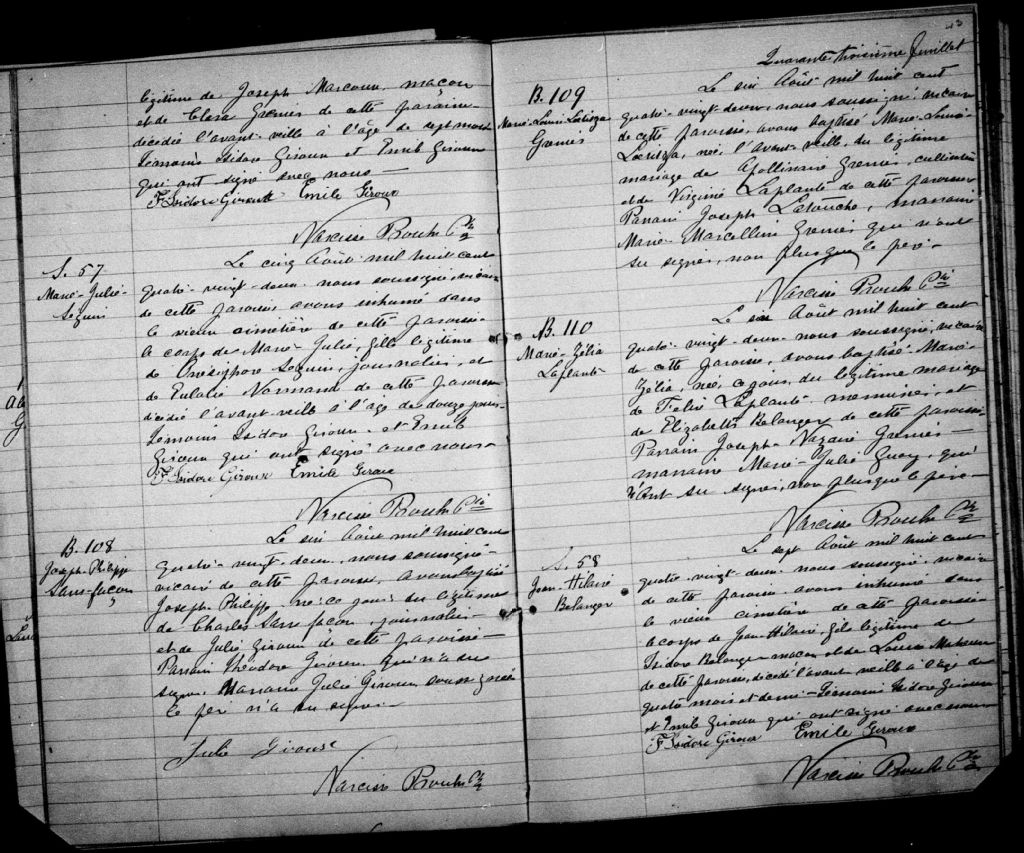 légitime de Joseph Marcoux, maçon
et de Clara Grenier de cette paroisse
décédé l'avant-veille à l'âge de sept mois
Témoins Isidore Giroux et Emile Giroux
qui ont signé avec nous —
F Isidore Giroux Emile Giroux
Narcisse Proulx Ptre
S. 57
Marie-Julie-
Seguin
Le cinq Août mil huit cent
quatre-vingt-deux nous soussigné vicaire
de cette paroisse, avons inhumé dans
le vieux cimetière de cette paroisse
le corps de Marie-Julie, fille légitime
de Onésiphore Seguin, journalier, et
de Eulalie Normand de cette paroisse
décédée l'avant-veille à l'âge de douze jours
Témoins Isidore Giroux et Emile
Giroux qui ont signé avec nous —
F Isidore Giroux Emile Giroux
Narcisse Proulx Ptre
B. 108
Joseph-Philippe
Sans-façon
Le six Août mil huit cent
quatre-vingt-deux, nous soussigné
vicaire de cette paroisse, avons baptisé
Joseph Philippe, né ce jour du légitime
de Charles Sans façon, journalier
et de Julie Giroux de cette paroisse —
Parrain Théodore Giroux, qui n'a su
signer, Marraine Julie Giroux soussignée
le père n'a su signer —
Julie Giroux
Narcisse Proulx Ptre
43
Quarante troisième feuillet
B. 109
Marie-Louise-
Grenier
Le six Août mil huit cent
quatre-vingt-deux, nous soussigné, vicaire
de cette paroisse, avons baptisé Marie-Louise
née, l'avant-veille, du légitime
mariage de Apollinaire Grenier, cultivateur
et de Virginie Laplante de cette paroisse
Parrain Joseph Latouche, marraine
Marie-Marcelline Grenier qui n'ont
su signer, non plus que le père —
Narcisse Proulx Ptre
B. 110
Marie-Zélia
Laplante
Le six Août mil huit cent
quatre-vingt-deux nous soussigné, vicaire
de cette paroisse, avons baptisé Marie-
Zélia, née, ce jour, du légitime mariage
de Felix Laplante menuisier, et
de Elizabeth Belanger de cette paroisse
Parrain Joseph-Nazaire Grenier —
marraine Marie-Julie qui
n'ont su signer, non plus que le père —
Narcisse Proulx Ptre
S. 58
Jean-Hilaire
Belanger
Le sept Août mil huit cent
quatre-vingt-deux nous soussigné, vicaire
de cette paroisse avons inhumé dans
le vieux cimetière de cette paroisse
le corps de Jean Hilaire, fils légitime de
Isidore Belanger maçon et de Louise
de cette paroisse, décédé l'avant-veille à l'âge de
quatre mois et demi — Témoins Isidore Giroux
et Emile Giroux qui ont signé avec nous
F Isidore Giroux Emile Giroux
Narcisse Proulx Ptre